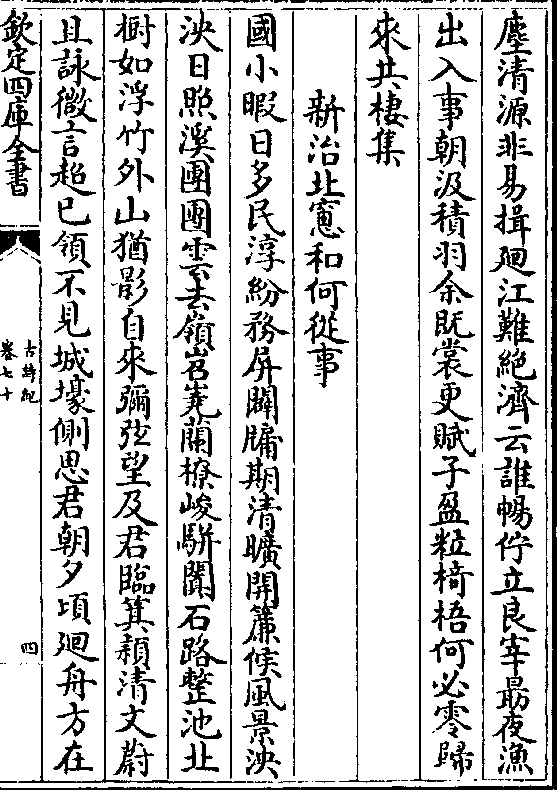 塵清源非易揖廻江難絕濟云誰暢佇立良宰勗夜漁
出入事朝汲積羽余既裳更賦子盈粒椅梧何必零歸
來共棲集
新治北窻和何從事
國小暇日多民淳紛務屏闢牖期清曠開簾候風景泱
泱日照溪團團雲去嶺岧嶤蘭橑峻駢闐石路整池北
樹如浮竹外山猶影自來彌弦望及君臨箕潁清文蔚
且詠微言超已領不見城壕側思君朝夕頃廻舟方在
欽定四庫全書
古詩紀
卷七十
四